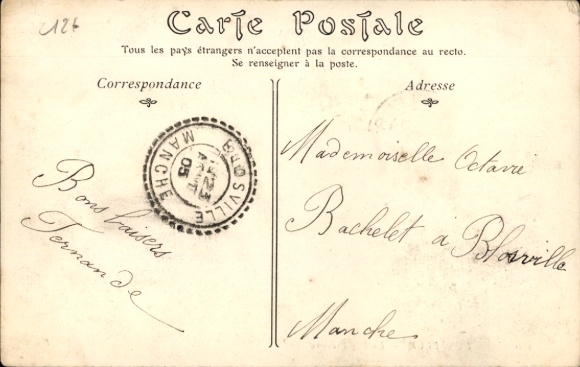 C12t
Carte Postale
Tous les pays étrangers n'acceptent pas la correspondance au recto.
Se renseigner à la poste.
Correspondance
Adresse
BLOSVILLE
MANCHE
23
AOUT
05
Bons baisers
Fernande
Mademoiselle Octavie
Bachelet à Blosville
Manche